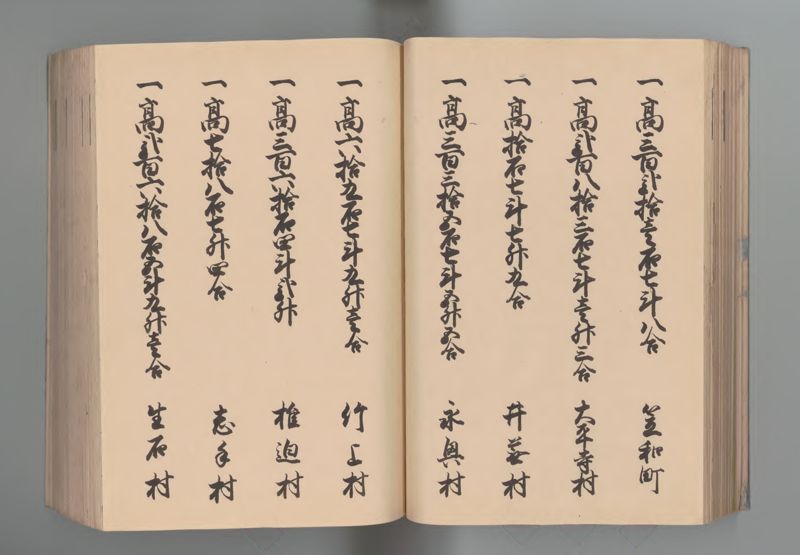 一高三百弐拾壱石七斗八合 笠和町
一高弐百八拾三石七斗壱升三合 大平寺村
一高拾石七斗七升九合 井芸村
一高三百三拾五石七斗五升五合 永興村
一高六拾九石七斗九升壱合 竹上村
一高三百六拾石四斗弐升 椎迫村
一高七拾八石七升四合 志手村
一高弐百六拾八石五斗九升壱合 生石村